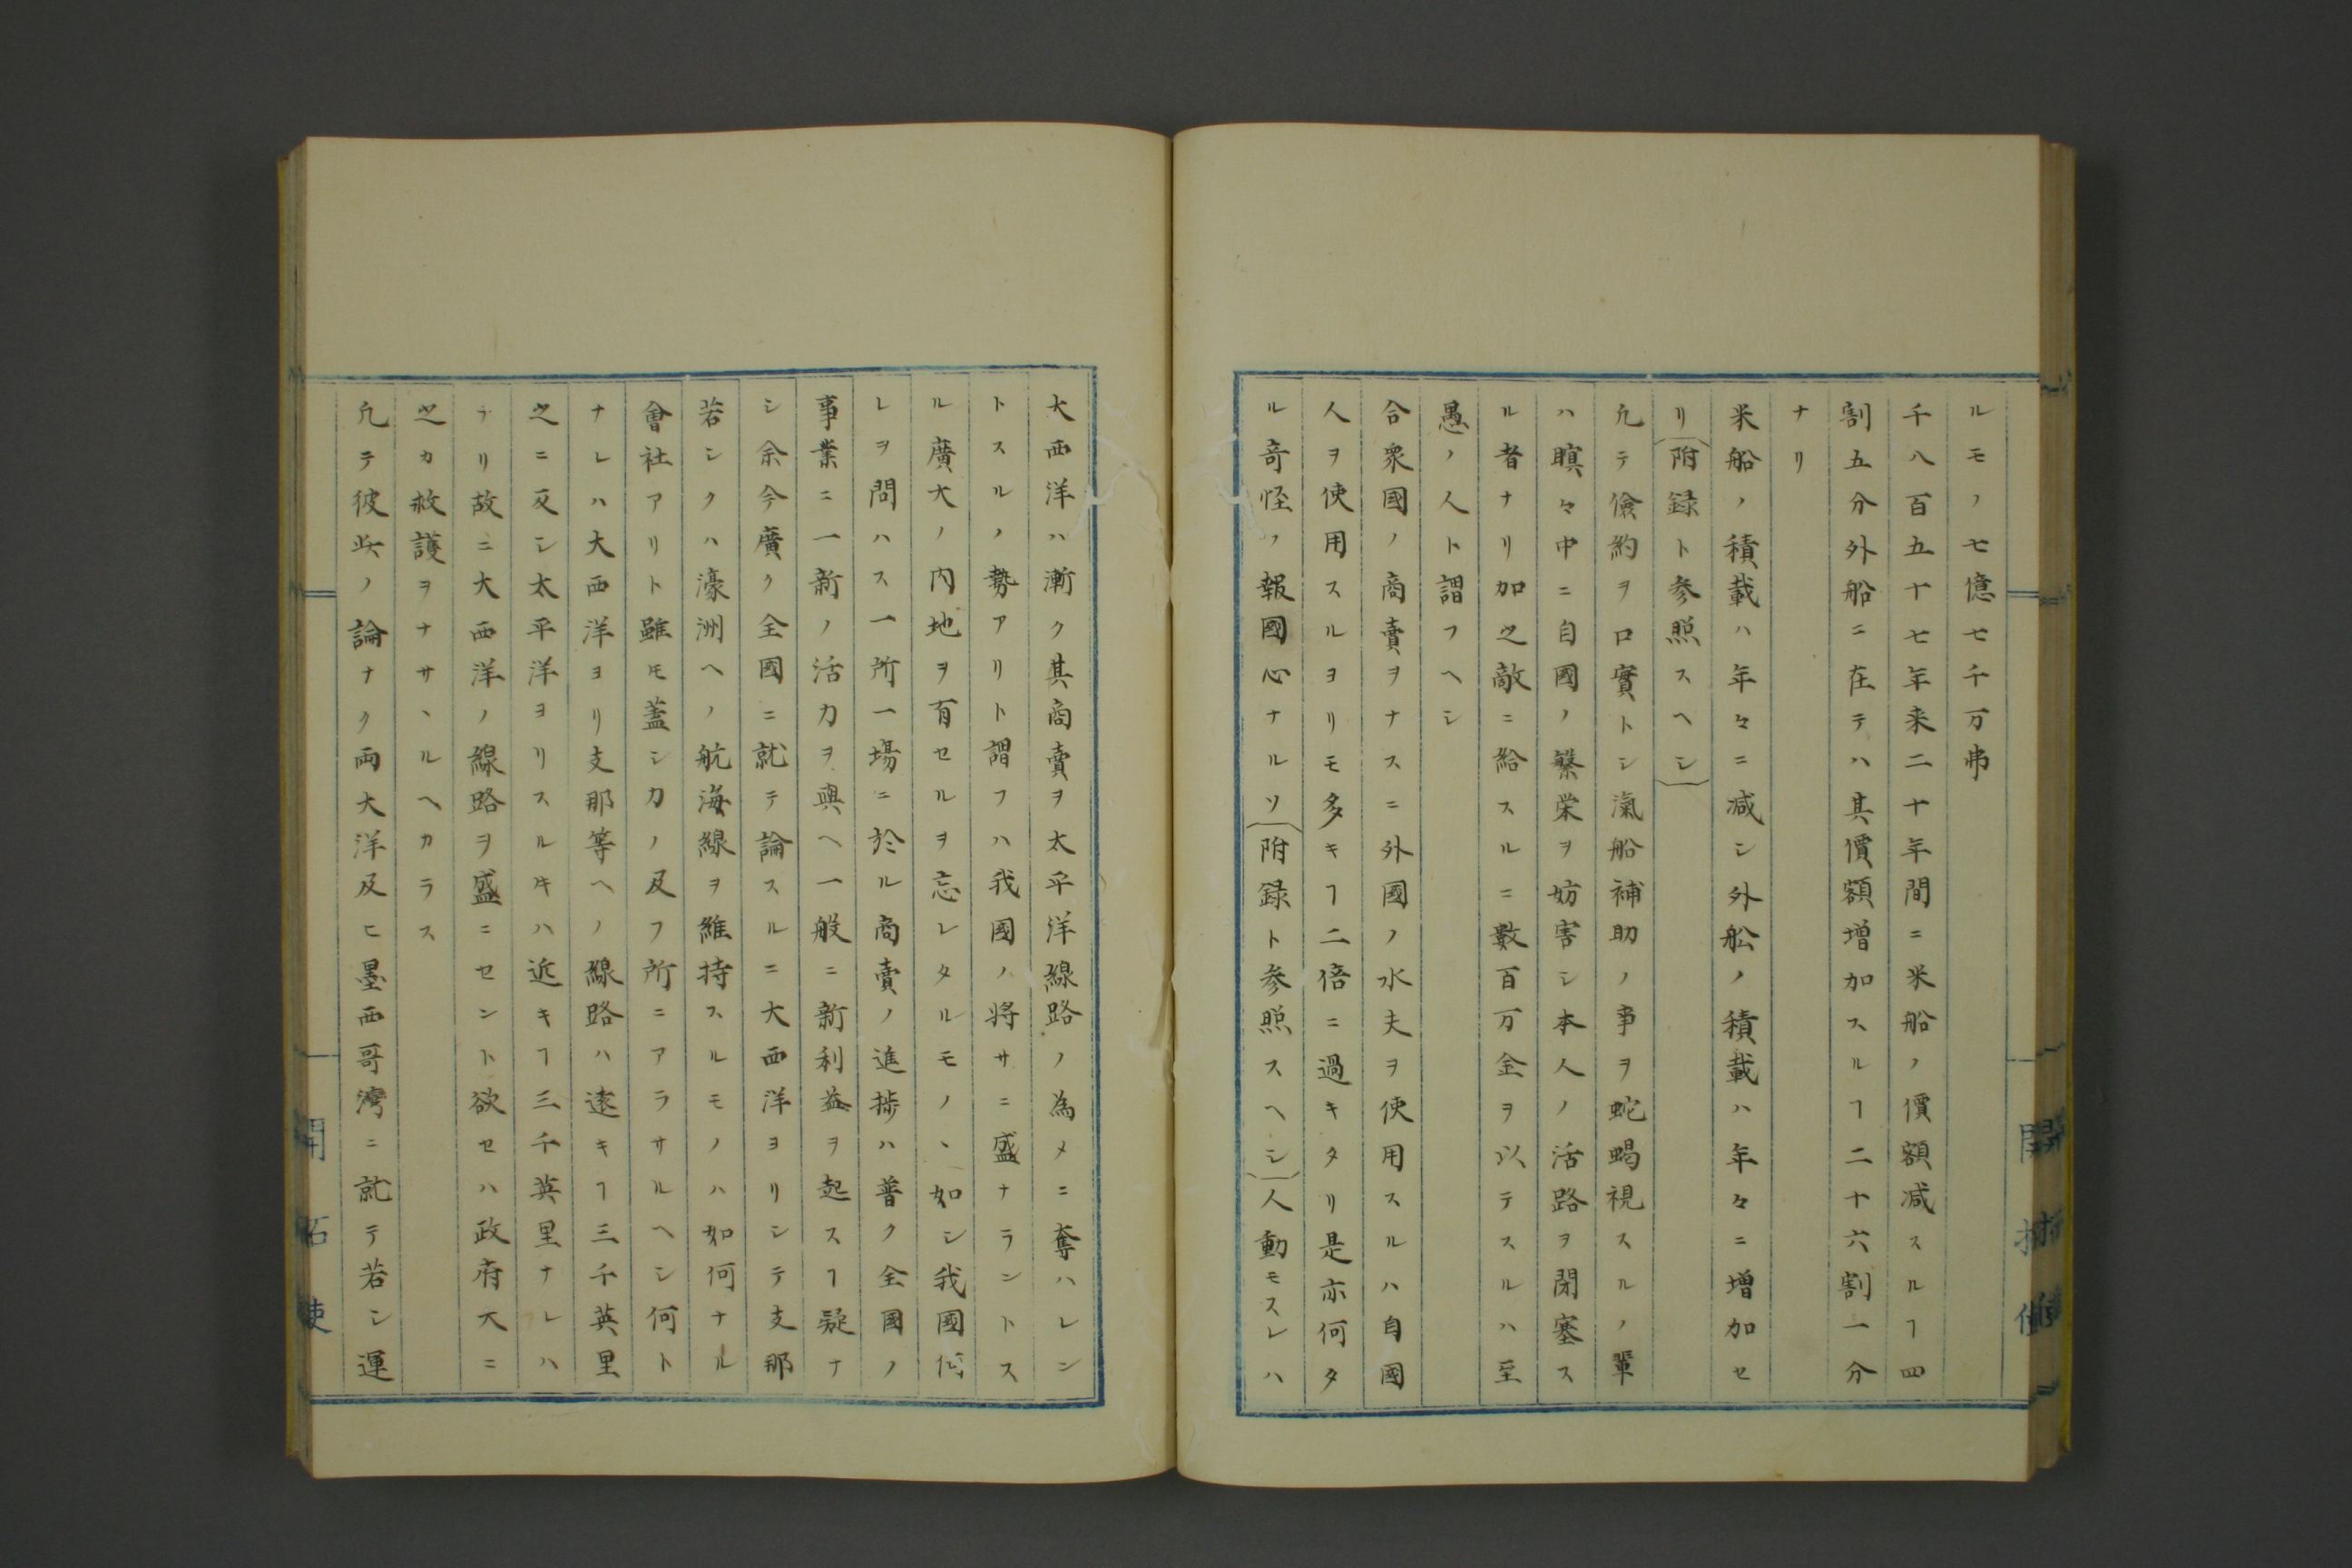 ルモノ七億七千万弗
千八百五十七年来二十年間ニ米船ノ價額減スルヿ四
割五分外船ニ在テハ其價額増加スルヿ二十六割一分
ナリ
米船ノ積載ハ年々ニ減シ外舩ノ積載ハ年々ニ増加セ
リ(附録ト参照スヘシ)
凢テ儉約ヲ口實トシ滊船補助ノ事ヲ蛇蝎視スルノ輩
ハ瞑々中ニ自國ノ繁栄ヲ妨害シ本人ノ活路ヲ閉塞ス
ル者ナリ加之敵ニ給スルニ數百万金ヲ以テスルハ至
愚ノ人ト謂フヘシ
合衆國ノ商賣ヲナスニ外國ノ水夫ヲ使用スルハ自國
人ヲ使用スルヨリモ多キヿ二倍ニ過キタリ是亦何タ
ル竒恠ノ報國心ナルソ(附録ト参照スヘシ)人動モスレハ
大西洋ハ漸ク其商賣ヲ太平洋線路ノ為メニ奪ハレン
トスルノ勢アリト謂フハ我國ノ将サニ盛ナラントス
ル廣大ノ内地ヲ有セルヲ忘レタルモノヽ如シ我國何
レヲ問ハス一所一場ニ於ル商賣ノ進捗ハ普ク全國ノ
事業ニ一新ノ活力ヲ與ヘ一般ニ新利益ヲ起スヿ疑ナ
シ余今廣ク全國ニ就テ論スルニ大西洋ヨリシテ支那
若シクハ濠洲ヘノ航海線ヲ維持スルモノハ如何ナル
會社アリト雖モ蓋シ力ノ及フ所ニアラサルヘシ何ト
ナレハ大西洋ヨリ支那等ヘノ線路ハ遠キヿ三千英里
之ニ反シ太平洋ヨリスルキハ近キヿ三千英里ナレハ
ナリ故ニ大西洋ノ線路ヲ盛ニセント欲セハ政府大ニ
之カ救護ヲナサヽルヘカラス
凢テ彼此ノ論ナク両大洋及ヒ墨西哥灣ニ就テ若シ運
開拓使